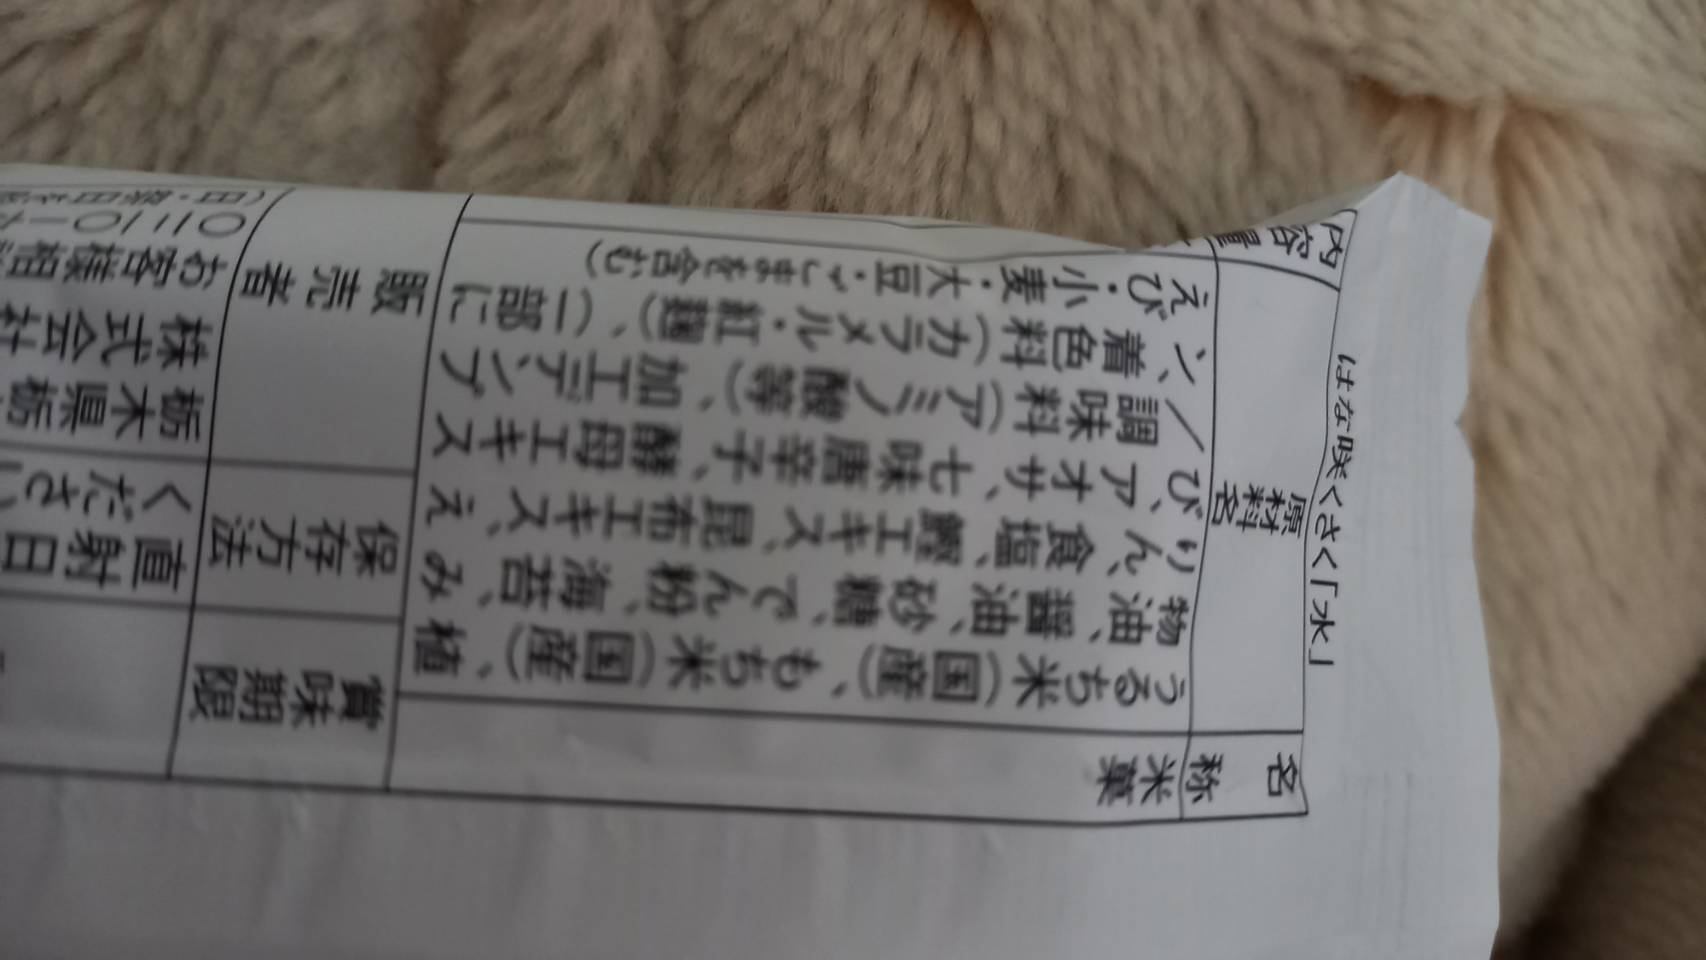 はな咲くさく「水」
名称
米菓
原材料名
うるち米(国産)、もち米(国産)、植
物油、醤油、砂糖、でん粉、海苔、み
りん、食塩、鰹エキス、昆布エキス、え
び、アオサ、七味唐辛子、酵母エキス
/調味料(アミノ酸等)、加工デンプ
ン、着色料(カラメル・紅麹)、(一部に
えび・小麦・大豆・ごまを含む)
内容量
賞味期限
保存方法
直射日
ください
販売者
栃木県栃
株式会社
お客様相
〇一二〇-
(日・祭日を